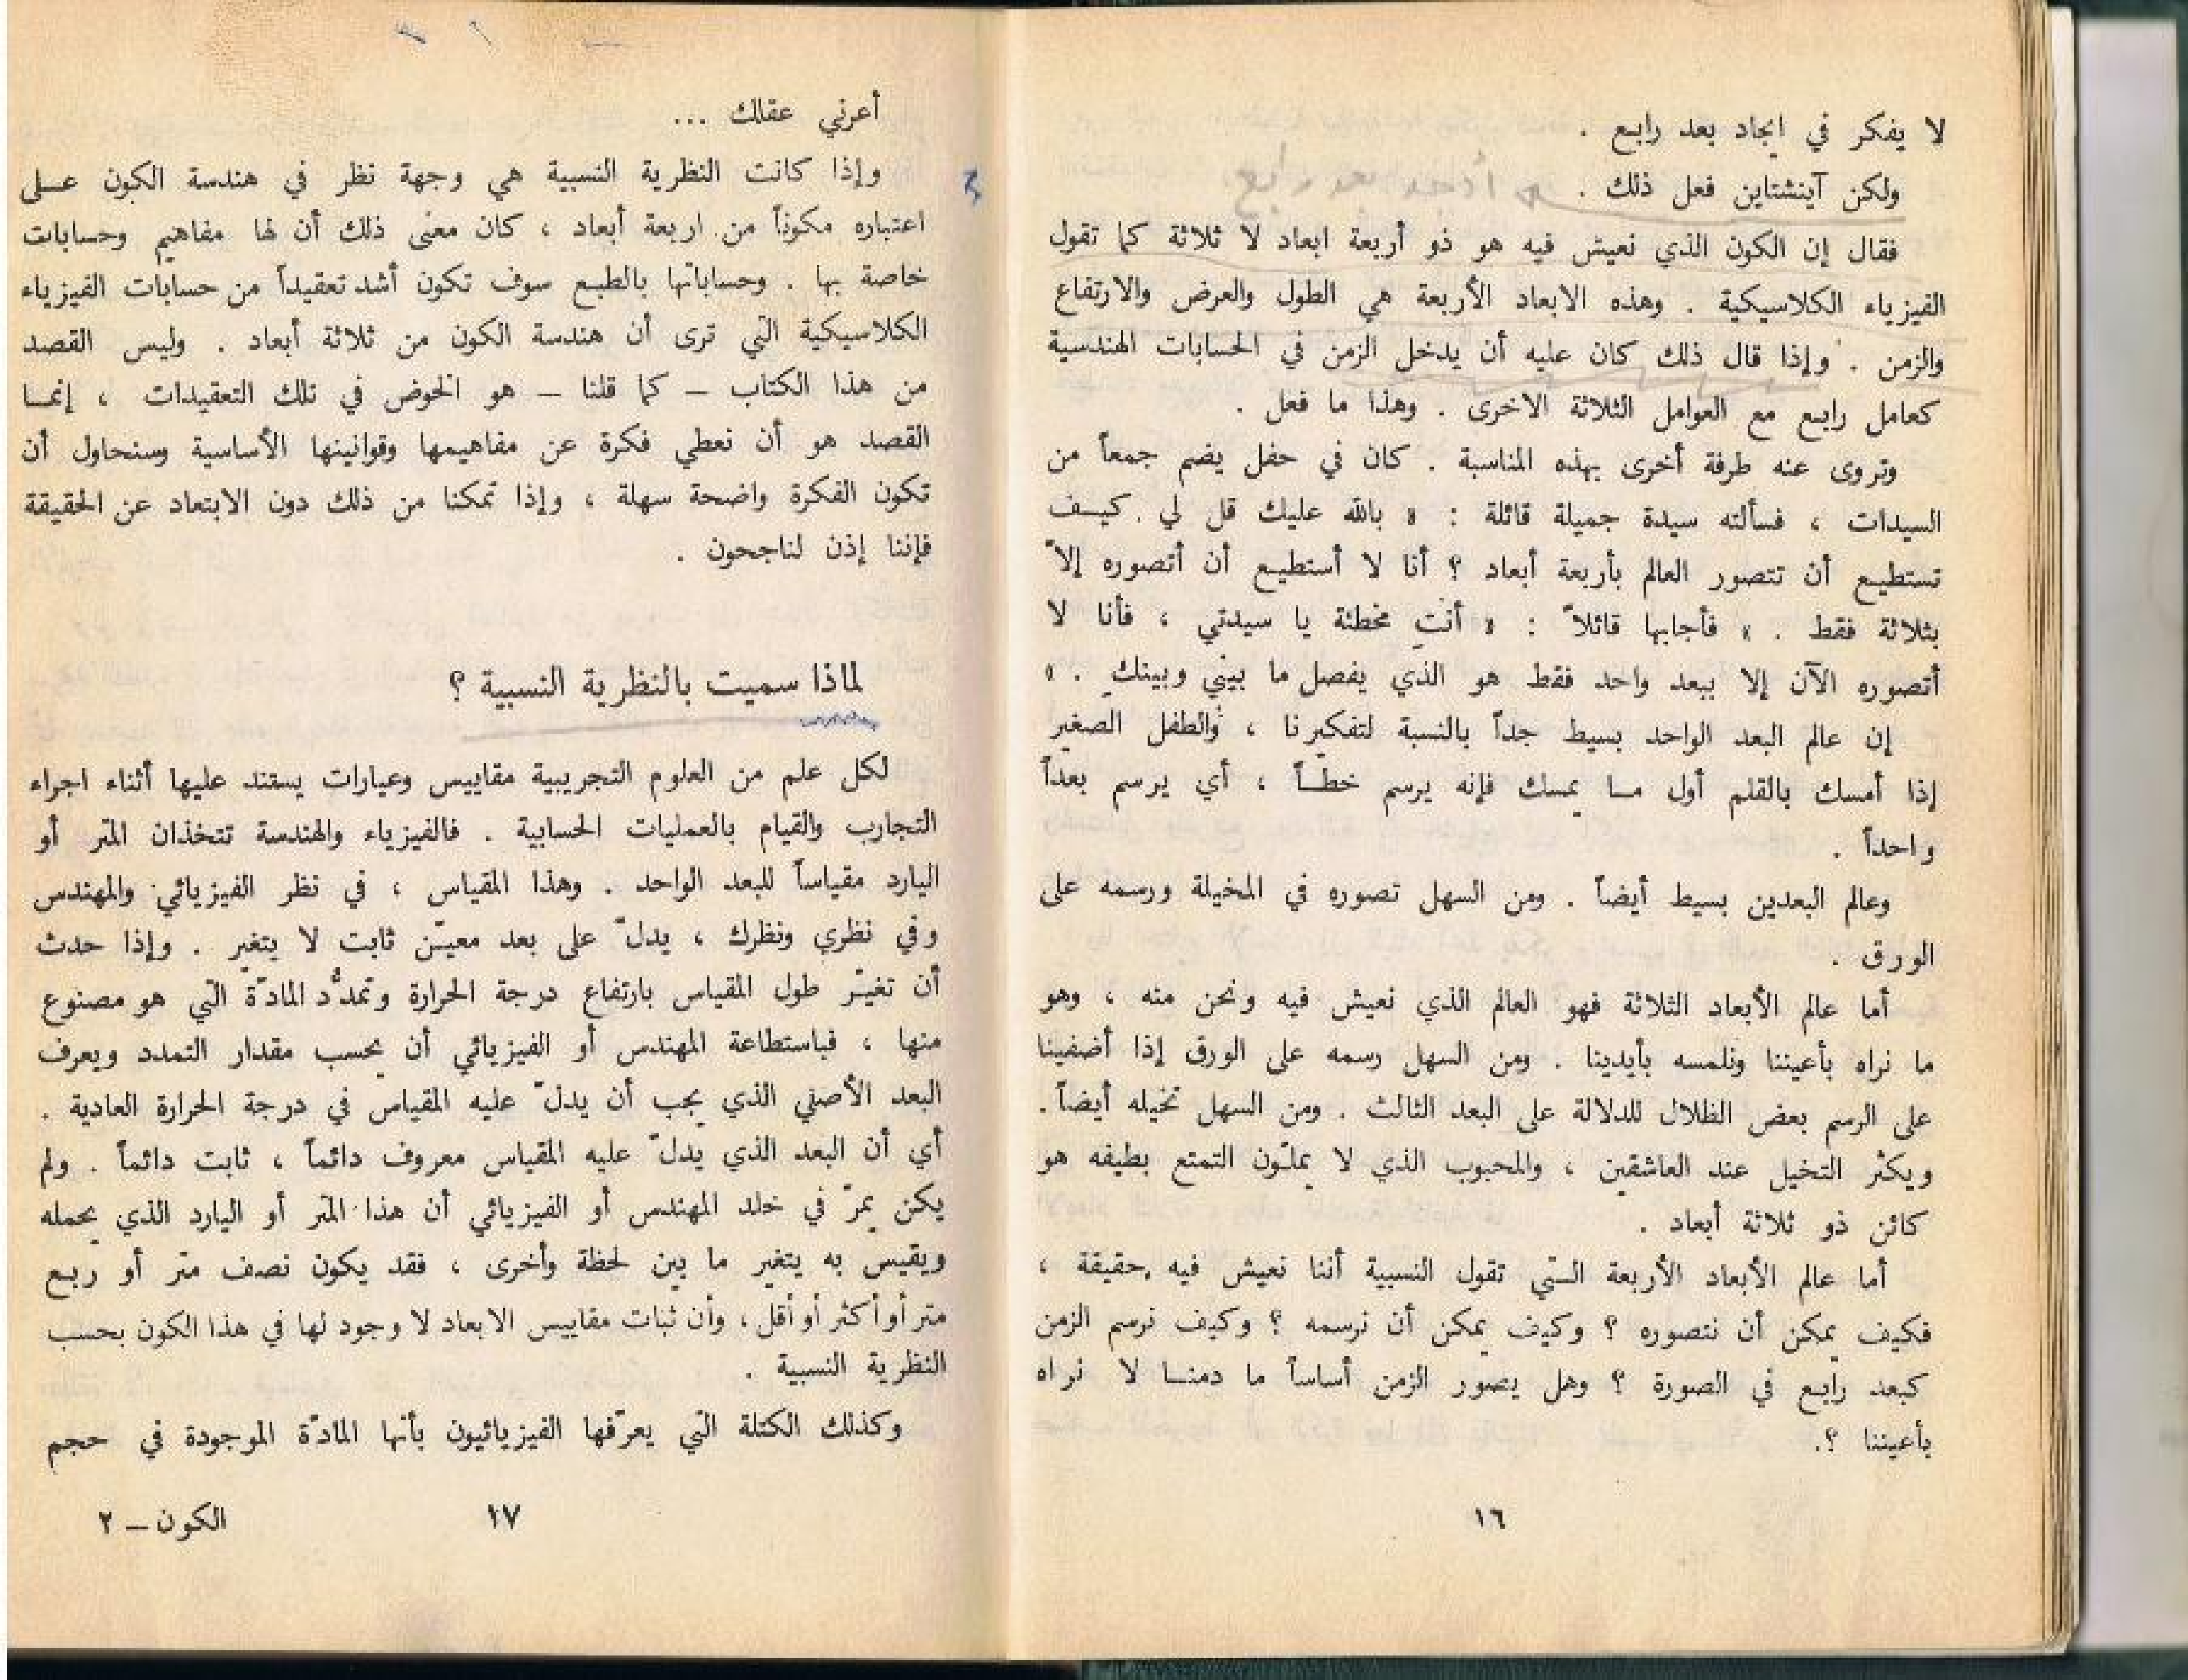 لا يفكر في ايجاد بعد رابع .
ولكن آينشتاين فعل ذلك . أوجد بعد رابع
فقال إن الكون الذي نعيش فيه هو ذو أربعة ابعاد لا ثلاثة كما تقول
الفيزياء الكلاسيكية . وهذه الابعاد الأربعة هي الطول والعرض والارتفاع
والزمن . وإذا قال ذلك كان عليه أن يدخل الزمن في الحسابات الهندسية
كعامل رابع مع العوامل الثلاثة الاخرى . وهذا ما فعل .
وتروى عنه طرفة أخرى بهذه المناسبة . كان في حفل يضم جمعاً من
السيدات ، فسألته سيدة جميلة قائلة : « بالله عليك قل لي كيف
تستطيع أن تتصور العالم بأربعة أبعاد ؟ أنا لا أستطيع أن أتصوره إلاّ
بثلاثة فقط . » فأجابها قائلاً : « أنتِ مخطئة يا سيدتي ، فأنا لا
أتصوره الآن إلا ببعد واحد فقط هو الذي يفصل ما بيني وبينك . »
إن عالم البعد الواحد بسيط جداً بالنسبة لتفكيرنا ، والطفل الصغير
إذا أمسك بالقلم أول ما يمسك فإنه يرسم خطاً ، أي يرسم بعداً
واحداً .
وعالم البعدين بسيط أيضاً . ومن السهل تصوره في المخيلة ورسمه على
الورق .
أما عالم الأبعاد الثلاثة فهو العالم الذي نعيش فيه ونحن منه ، وهو
ما نراه بأعيننا ونلمسه بأيدينا . ومن السهل رسمه على الورق إذا أضفينا
على الرسم بعض الظلال للدلالة على البعد الثالث . ومن السهل تخيله أيضاً .
ويكثر التخيل عند العاشقين ، والمحبوب الذي لا يملّون التمتع بطيفه هو
كائن ذو ثلاثة أبعاد .
أما عالم الأبعاد الأربعة التي تقول النسبية أننا نعيش فيه حقيقة ،
فكيف يمكن أن نتصوره ؟ وكيف يمكن أن نرسمه ؟ وكيف نرسم الزمن
كبعد رابع في الصورة ؟ وهل يصور الزمن أساساً ما دمنا لا نراه
بأعيننا ؟.
١٦
أعرني عقلك ...
وإذا كانت النظرية النسبية هي وجهة نظر في هندسة الكون على
اعتباره مكوناً من اربعة أبعاد ، كان معنى ذلك أن لها مفاهيم وحسابات
خاصة بها . وحساباتها بالطبع سوف تكون أشد تعقيداً من حسابات الفيزياء
الكلاسيكية التي ترى أن هندسة الكون من ثلاثة أبعاد . وليس القصد
من هذا الكتاب – كما قلنا – هو الخوض في تلك التعقيدات ، إنما
القصد هو أن نعطي فكرة عن مفاهيمها وقوانينها الأساسية وسنحاول أن
تكون الفكرة واضحة سهلة ، وإذا تمكنا من ذلك دون الابتعاد عن الحقيقة
فإننا إذن لناجحون .
لماذا سميت بالنظرية النسبية ؟
لكل علم من العلوم التجريبية مقاييس وعيارات يستند عليها أثناء اجراء
التجارب والقيام بالعمليات الحسابية . فالفيزياء والهندسة تتخذان المتر أو
اليارد مقياساً للبعد الواحد . وهذا المقياس ، في نظر الفيزيائي والمهندس
وفي نظري ونظرك ، يدلّ على بعد معيّن ثابت لا يتغير . وإذا حدث
أن تغيّر طول المقياس بارتفاع درجة الحرارة وتمدُّد المادّة التي هو مصنوع
منها ، فباستطاعة المهندس أو الفيزيائي أن يحسب مقدار التمدد ويعرف
البعد الأصلي الذي يجب أن يدلّ عليه المقياس في درجة الحرارة العادية .
أي أن البعد الذي يدلّ عليه المقياس معروف دائماً ، ثابت دائماً . ولم
يكن يمرّ في خلد المهندس أو الفيزيائي أن هذا المتر أو اليارد الذي يحمله
ويقيس به يتغير ما بين لحظة وأخرى ، فقد يكون نصف متر أو ربع
متر أو أكثر أو أقل ، وأن ثبات مقاييس الابعاد لا وجود لها في هذا الكون بحسب
النظرية النسبية .
وكذلك الكتلة التي يعرّفها الفيزيائيون بأنها المادّة الموجودة في حجم
١٧
الكون – ٢